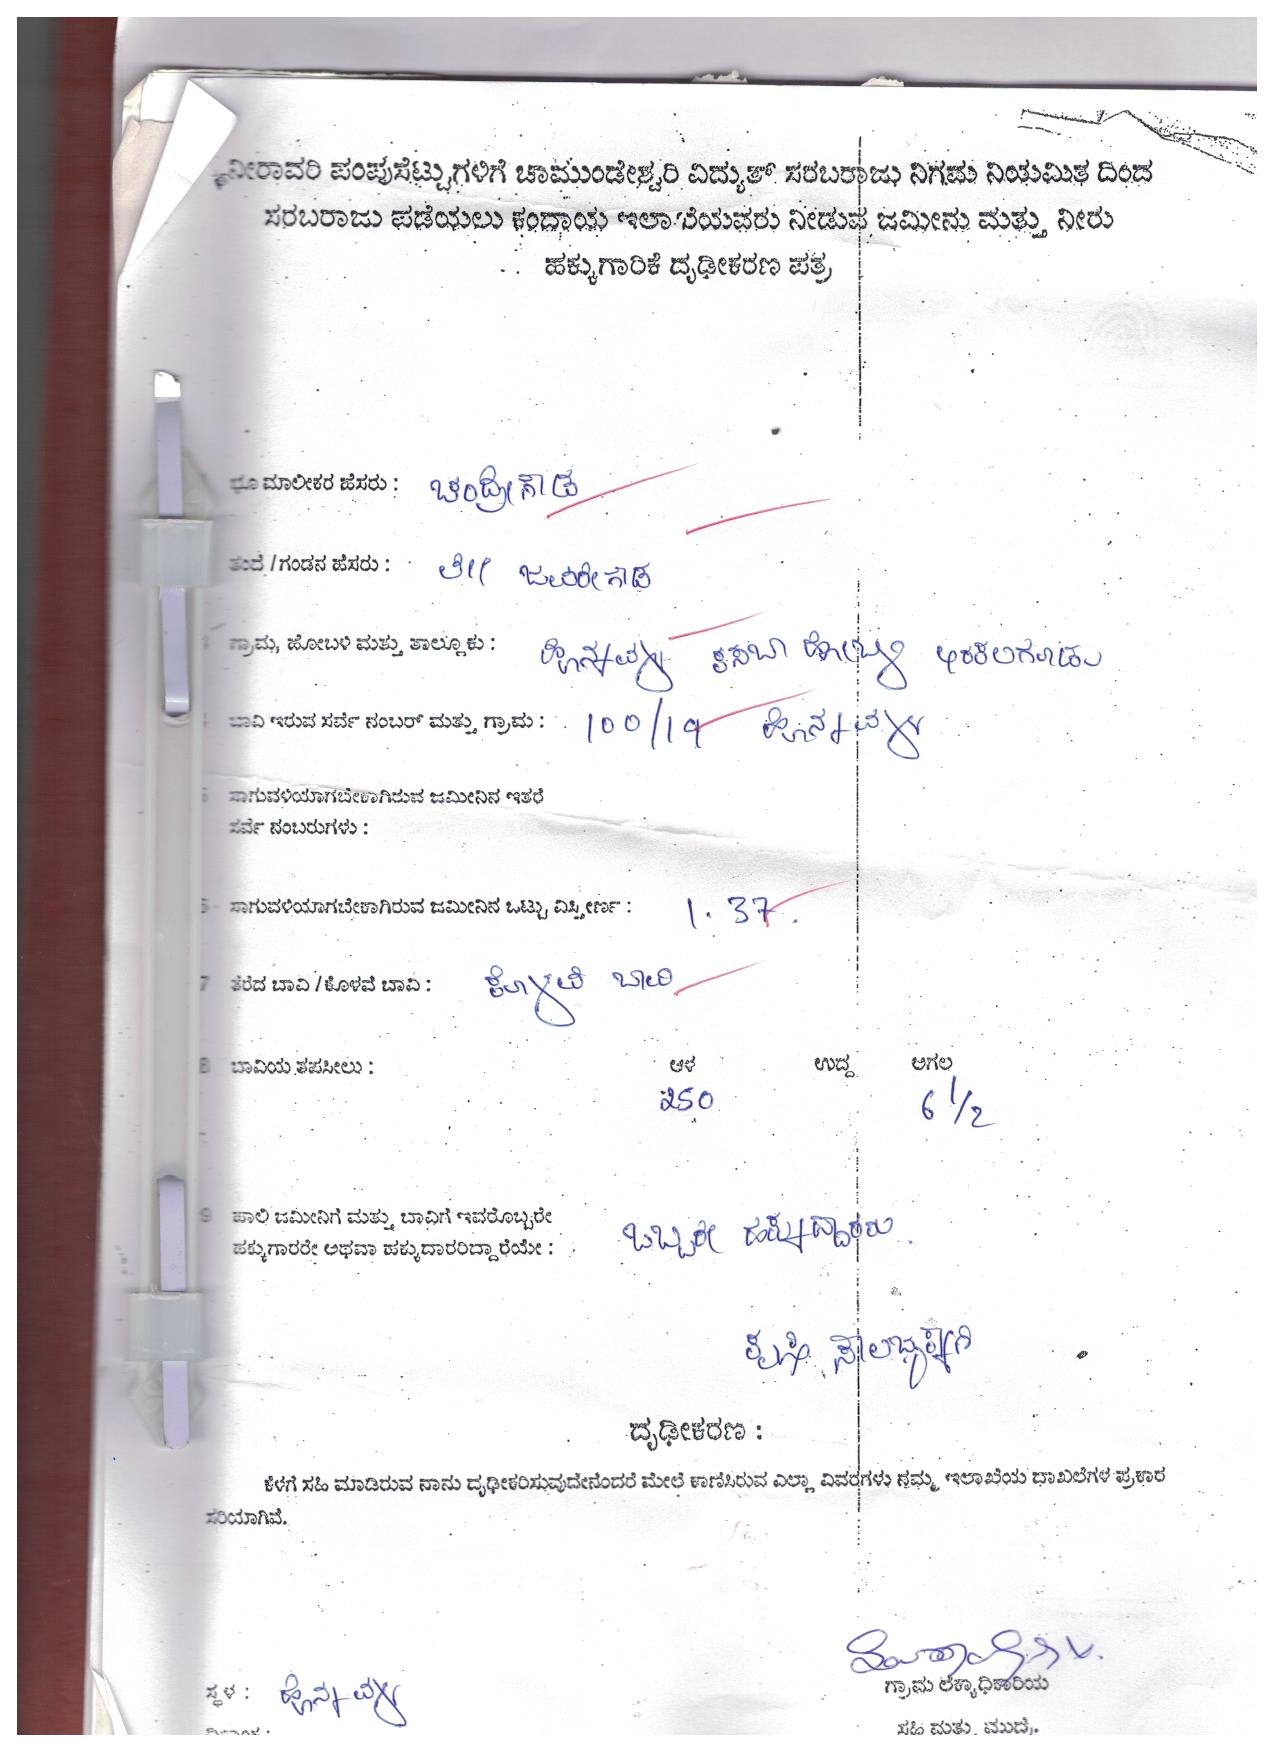 ನೀರಾವರಿ ಪಂಪುಸೆಟ್ಟುಗಳಿಗೆ ಚಾಮುಂಡೇಶ್ವರಿ ವಿದ್ಯುತ್ ಸರಬರಾಜು ನಿಗಮ ನಿಯಮಿತ ದಿಂದ
ಸರಬರಾಜು ಪಡೆಯಲು ಕಂದಾಯ ಇಲಾಖೆಯವರು ನೀಡುವ ಜಮೀನು ಮತ್ತು ನೀರು
ಹಕ್ಕುಗಾರಿಕೆ ದೃಢೀಕರಣ ಪತ್ರ
ಭೂ ಮಾಲೀಕರ ಹೆಸರು : ಚಂದ್ರೇಗೌಡ
ತಂದೆ / ಗಂಡನ ಹೆಸರು : ಜವರೇಗೌಡ
ಗ್ರಾಮ, ಹೋಬಳಿ ಮತ್ತು ತಾಲ್ಲೂಕು : ಹೊನ್ನವಳ್ಳಿ ಕಸಬಾ ಹೋಬಳಿ ಅರಕಲಗೂಡು
4 ಬಾವಿ ಇರುವ ಸರ್ವೆ ನಂಬರ್ ಮತ್ತು ಗ್ರಾಮ : 100/19 ಹೊನ್ನವಳ್ಳಿ
5 ಸಾಗುವಳಿಯಾಗಬೇಕಾಗಿರುವ ಜಮೀನಿನ ಇತರೆ
ಸರ್ವೆ ನಂಬರುಗಳು :
6 ಸಾಗುವಳಿಯಾಗಬೇಕಾಗಿರುವ ಜಮೀನಿನ ಒಟ್ಟು ವಿಸ್ತೀರ್ಣ : 1. 37.
7 ತೆರೆದ ಬಾವಿ / ಕೊಳವೆ ಬಾವಿ : ಕೊಳವೆ ಬಾವಿ
8 ಬಾವಿಯ ತಪಸೀಲು : ಆಳ ಉದ್ದ ಅಗಲ
250 6 1/2
9 ಹಾಲಿ ಜಮೀನಿಗೆ ಮತ್ತು ಬಾವಿಗೆ ಇವರೊಬ್ಬರೇ
ಹಕ್ಕುಗಾರರೇ ಅಥವಾ ಹಕ್ಕುದಾರರಿದ್ದಾರೆಯೇ : ಒಬ್ಬರೇ ಹಕ್ಕುದ್ದಾರರು.
ಕೃಷಿ ಸಾಲಭ್ಯಕ್ಕಾಗಿ
ದೃಢೀಕರಣ :
ಕೆಳಗೆ ಸಹಿ ಮಾಡಿರುವ ನಾನು ದೃಢೀಕರಿಸುವುದೇನೆಂದರೆ ಮೇಲೆ ಕಾಣಿಸಿರುವ ಎಲ್ಲಾ ವಿವರಗಳು ನಮ್ಮ ಇಲಾಖೆಯ ದಾಖಲೆಗಳ ಪ್ರಕಾರ
ಸರಿಯಾಗಿವೆ.
ಗ್ರಾಮ ಲೆಕ್ಕಾಧಿಕಾರಿಯ
ಸ್ಥಳ : ಹೊನ್ನವಳ್ಳಿ
ಸಹಿ ಮತ್ತು ಮುದ್ರೆ.
ದಿನಾಂಕ :